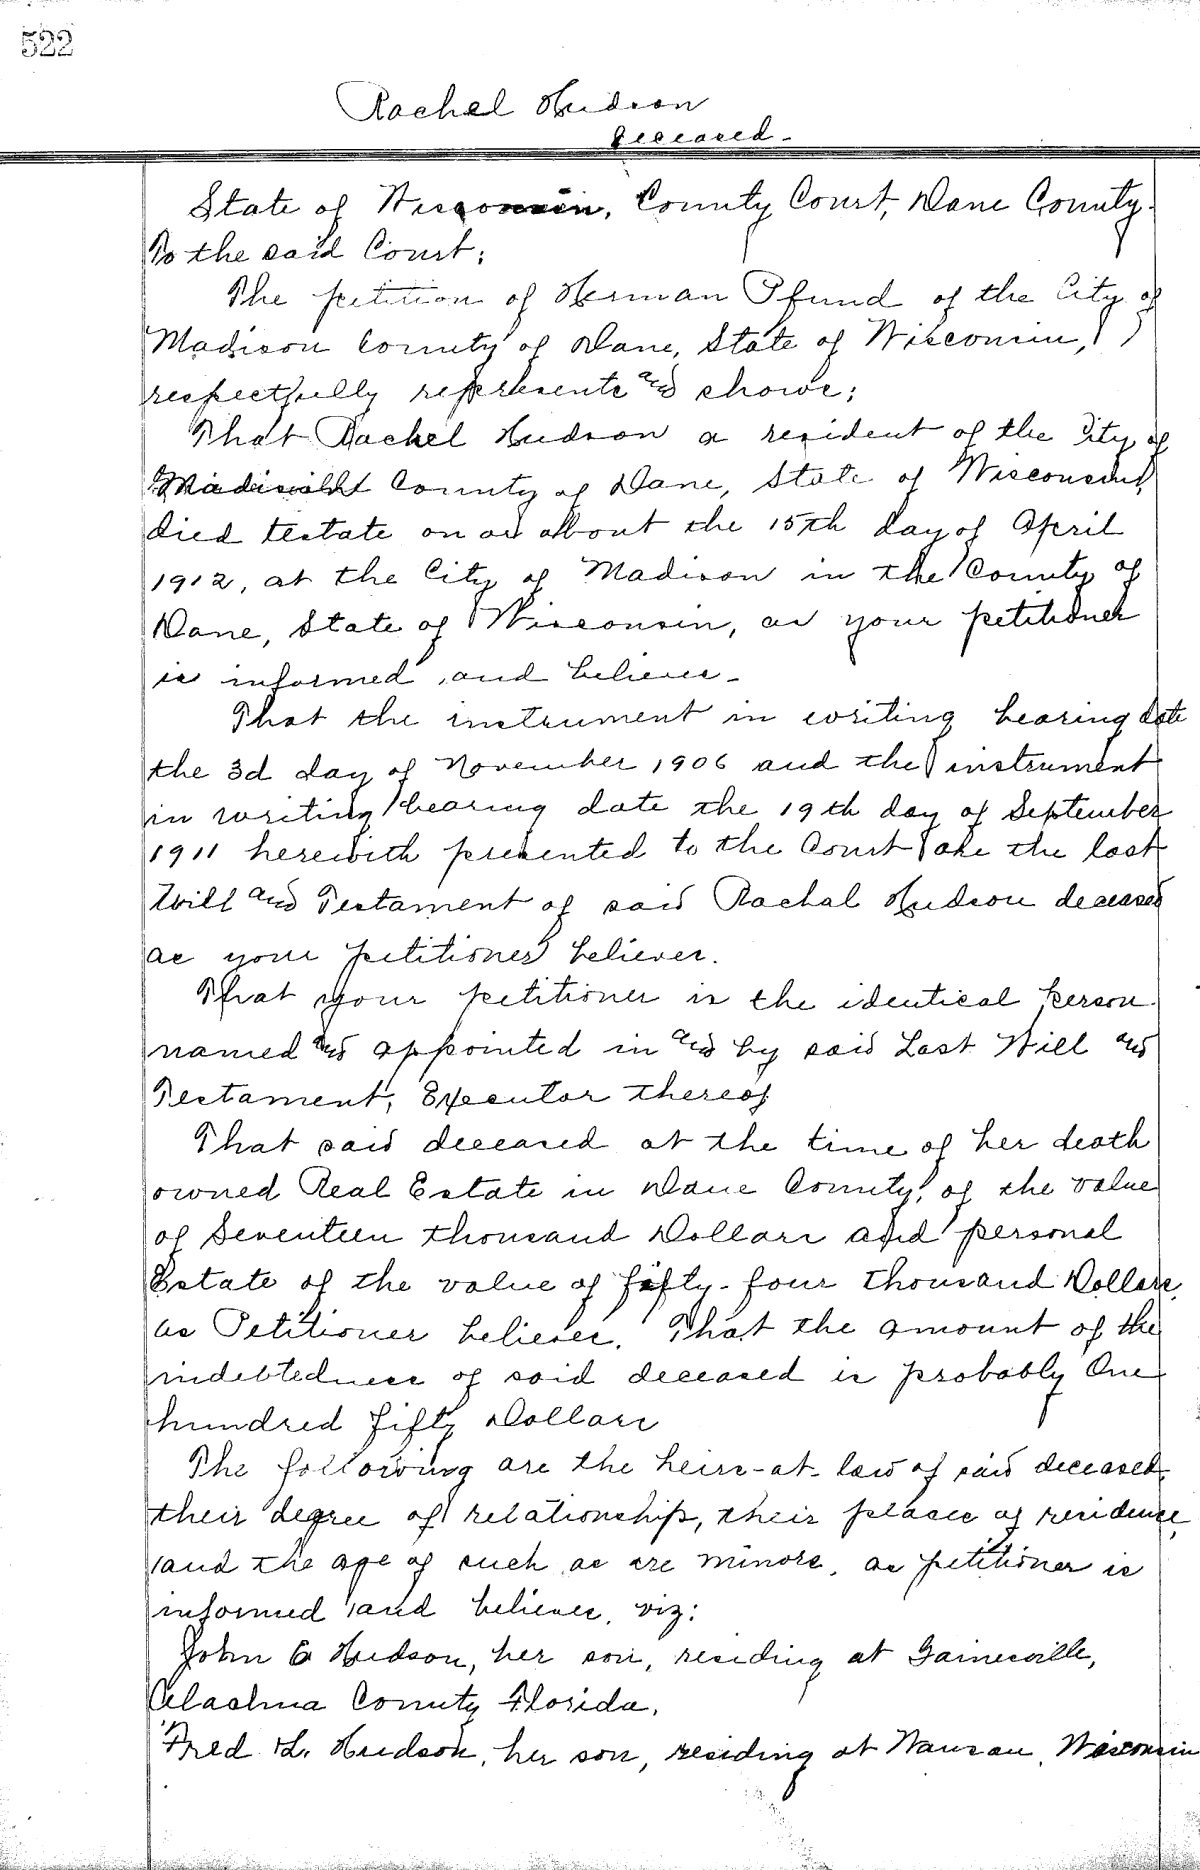 522
Rachel Hudson
Deceased-
State of Wisconsin, County Court, Dane County.
To the said Court:
The petition of Herman Pfund of the City of
Madison County of Dane, State of Wisconsin,
respectfully represents and shows:
That Rachel Hudson a resident of the City of
Madison County of Dane, State of Wisconsin,
died testate on or about the 15th day of April
1912, at the City of Madison in the County of
Dane, State of Wisconsin, as your petitioner
is informed and believes-
That the instrument in writing bearing date
the 3d day of November 1906 and the instrument
in writing bearing date the 19th day of September
1911 herewith presented to the Court are the last
Will and Testament of said Rachal Hudson deceased
as your petitioner believes.
That your petitioner is the identical person
named and appointed in and by said Last Will and
Testament, Executor thereof
That said deceased at the time of her death
owned Real Estate in Dane County, of the value
of Seventeen thousand Dollars and personal
Estate of the value of fifty-four thousand Dollars,
as Petitioner believes. That the amount of the
indebtedness of said deceased is probably One
hundred fifty Dollars
The following are the heirs-at-law of said deceased,
their degree of relationship, their places of residence,
and the age of such as are minors, as petitioner is
informed and believes, viz:
John E Hudson, her son, residing at Gainesville,
Alachua County Florida.
Fred H. Hudson, her son, residing at Wausau, Wisconsin